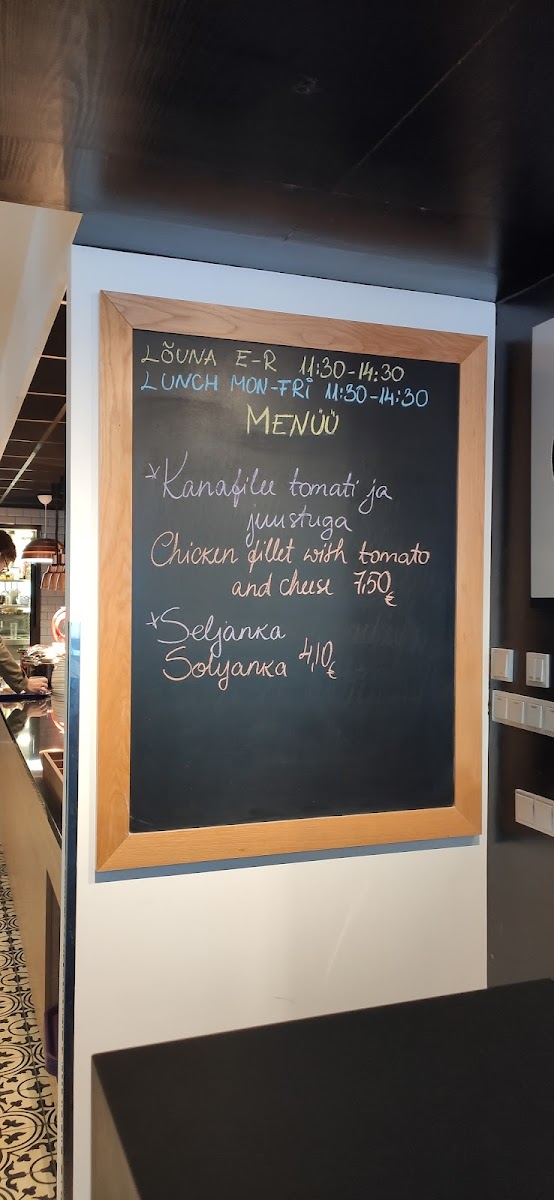 LÕUNA E-R 11:30-14:30
LUNCH MON-FRI 11:30-14:30
MENÜÜ
*Kanafilee tomati ja
juustuga
Chicken fillet with tomato
and cheese 7,50€
*Seljanka
Solyanka 4,10€